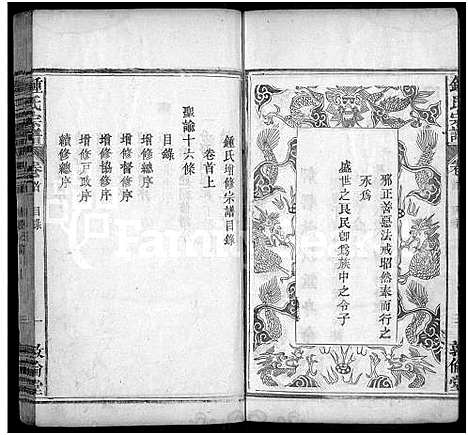 鍾氏宗譜
邪正善惡法戒昭然奉而行之
永爲
盛世之良民卽爲族中之令子
敦倫堂
鍾氏增修宗譜目錄
卷首上
聖諭十六條
目錄
增修總序
增修戶政序
增修協修序
續修總序
鍾氏宗譜
卷首
目錄
一
敦倫堂